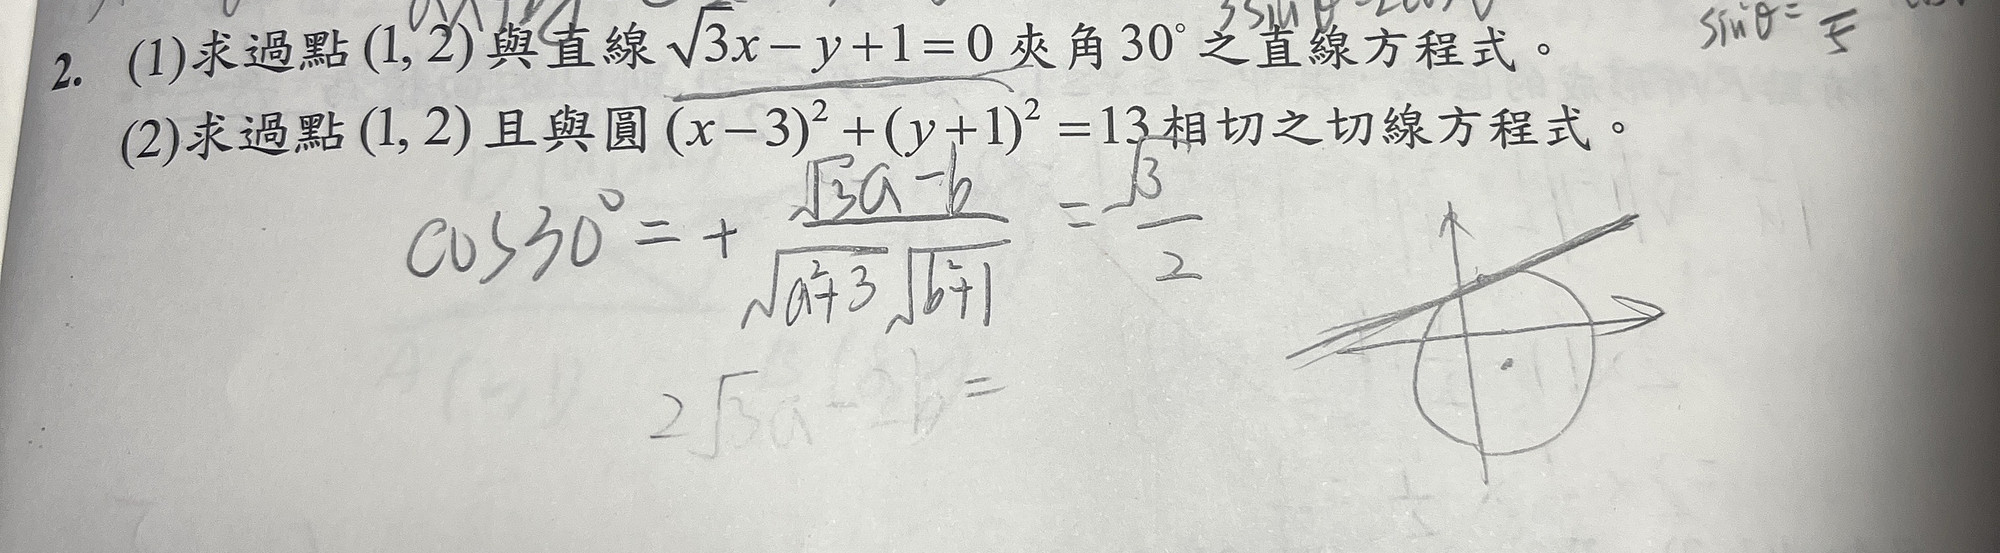 3sinθ
sinθ = 5
2. (1)求過點(1, 2)與直線√3x − y + 1 = 0 夾角30°之直線方程式。
(2)求過點(1, 2)且與圓(x − 3)² + (y + 1)² = 13相切之切線方程式。
cos30° = + (√3a − b) / (√(a²+3) √(b²+1)) = √3 / 2
2√3a − 2b =